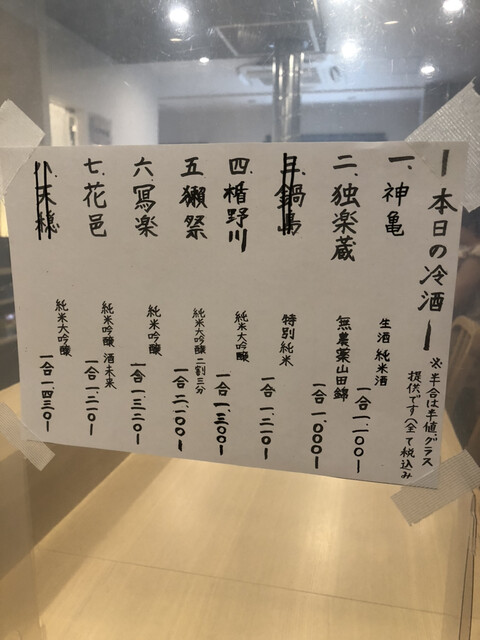 ー本日の冷酒ー
※半合は半値、グラス
提供です(全て税込み
一、神亀
生酒 純米酒
一合 一、一〇〇ー
二、独楽蔵
無農薬山田錦
一合 一、〇〇〇ー
三、鍋島
特別純米
一合 一、二一〇ー
四、楯野川
純米大吟醸
一合 一、三〇〇ー
五、獺祭
純米大吟醸 二割三分
一合 二、一〇〇ー
六、冩楽
純米吟醸
一合 一、三二〇ー
七、花邑
純米吟醸 酒未来
一合 一、二一〇ー
八、天穏
純米大吟醸
一合 一、四三〇ー